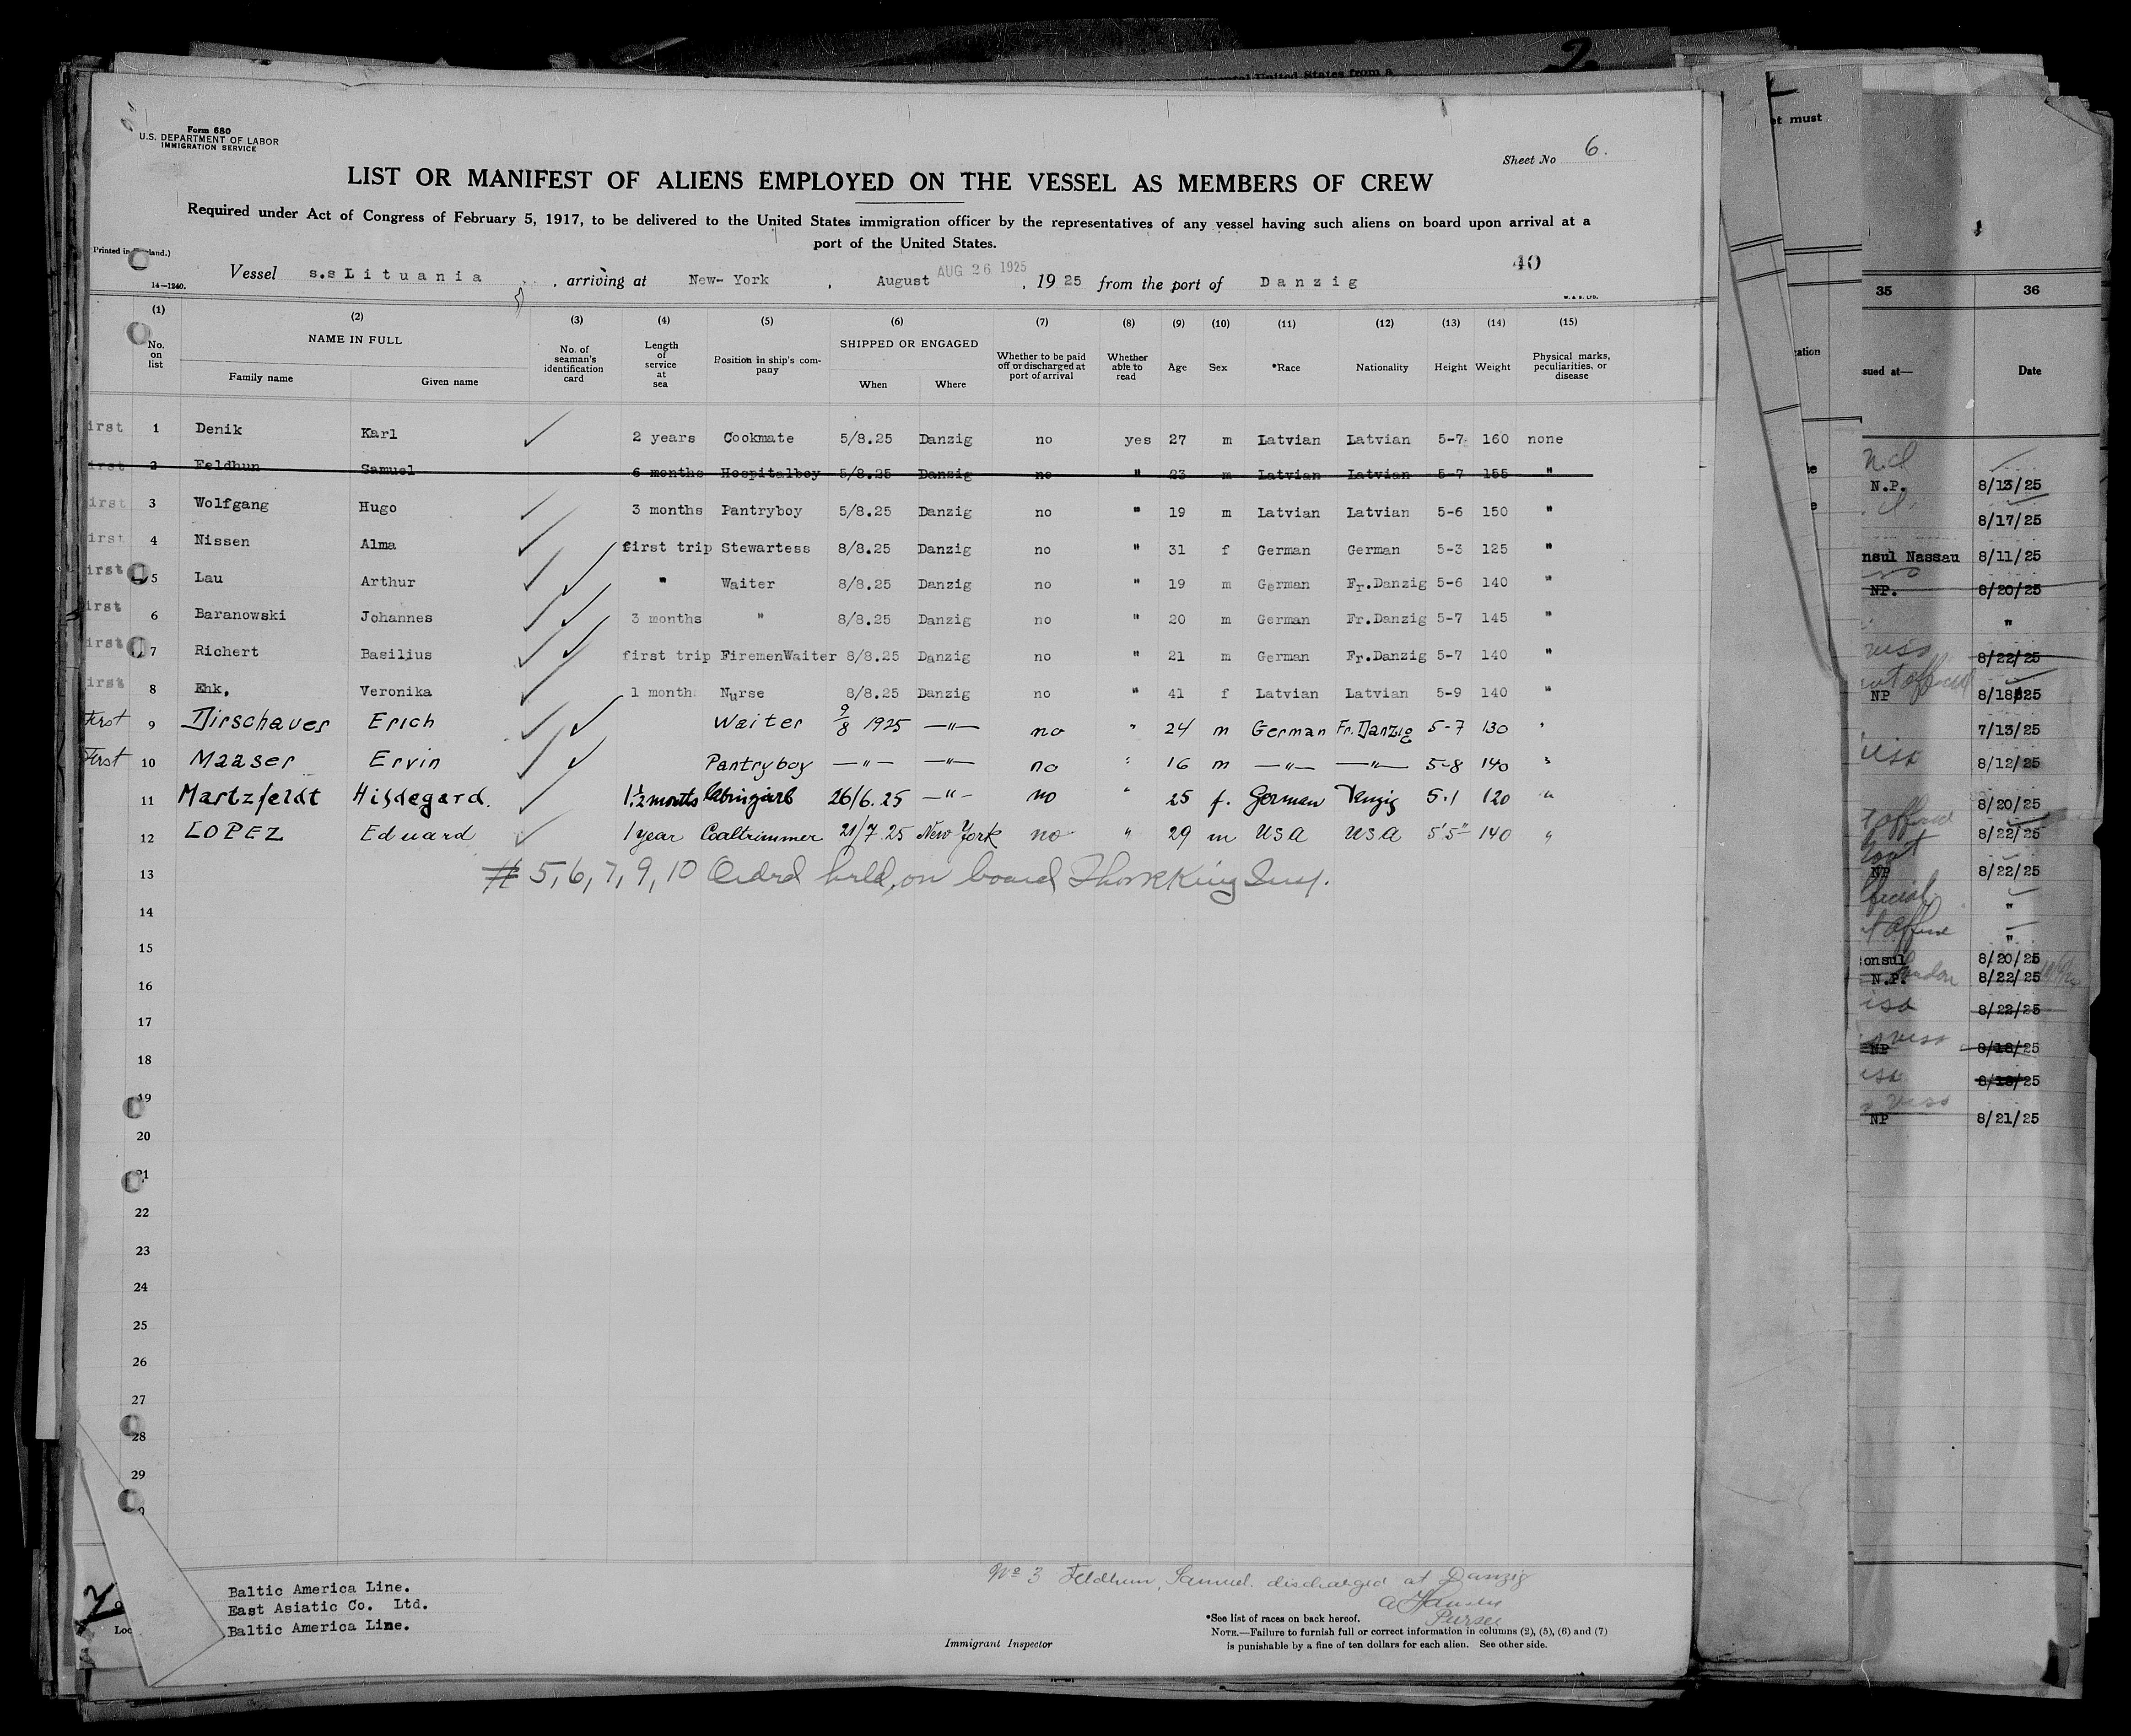 Form 680
U.S. DEPARTMENT OF LABOR
IMMIGRATION SERVICE
Sheet No 6.
LIST OR MANIFEST OF ALIENS EMPLOYED ON THE VESSEL AS MEMBERS OF CREW
Required under Act of Congress of February 5, 1917, to be delivered to the United States immigration officer by the representatives of any vessel having such aliens on board upon arrival at a
port of the United States.
40
Vessel s.s Lituania, arriving at New-York, August AUG 26 1925, 1925 from the port of Danzig
14—1240.
W. & S. LTD.
(1) (2) (3) (4) (5) (6) (7) (8) (9) (10) (11) (12) (13) (14) (15)
No. on list NAME IN FULL No. of seaman's identification card Length of service at sea Position in ship's company SHIPPED OR ENGAGED Whether to be paid off or discharged at port of arrival Whether able to read Age Sex *Race Nationality Height Weight Physical marks, peculiarities, or disease
Family name Given name When Where
irst 1 Denik Karl 2 years Cookmate 5/8.25 Danzig no yes 27 m Latvian Latvian 5-7 160 none
irst 2 Feldhun Samuel 6 months Hospitalboy 5/8.25 Danzig no " 23 m Latvian Latvian 5-7 155 "
irst 3 Wolfgang Hugo 3 months Pantryboy 5/8.25 Danzig no " 19 m Latvian Latvian 5-6 150 "
irst 4 Nissen Alma first trip Stewartess 8/8.25 Danzig no " 31 f German German 5-3 125 "
irst 5 Lau Arthur " Waiter 8/8.25 Danzig no " 19 m German Fr.Danzig 5-6 140 "
irst 6 Baranowski Johannes 3 months " 8/8.25 Danzig no " 20 m German Fr.Danzig 5-7 145 "
irst 7 Richert Basilius first trip FiremenWaiter 8/8.25 Danzig no " 21 m German Fr.Danzig 5-7 140 "
irst 8 Ehk, Veronika 1 month Nurse 8/8.25 Danzig no " 41 f Latvian Latvian 5-9 140 "
First 9 Dirschauer Erich Waiter 9/8 1925 —"— no " 24 m German Fr. Danzig 5-7 130 "
First 10 Maaser Ervin Pantryboy —"— —"— no " 16 m —"— —"— 5-8 140 "
11 Martzfeldt Hildegard. 1½ months 26/6.25 —"— no " 25 f. German Danzig 5.1 120 "
12 LOPEZ Eduard 1 year Coaltrimmer 21/7.25 New York no " 29 m USA USA 5'5" 140 "
13 # 5, 6, 7, 9, 10 held on board
14
15
16
17
18
19
20
21
22
23
24
25
26
27
28
29
No 3 Feldhun, Samuel. discharged at Danzig
Purser
Baltic America Line.
East Asiatic Co. Ltd.
Baltic America Line.
Immigrant Inspector
*See list of races on back hereof.
NOTE.—Failure to furnish full or correct information in columns (2), (5), (6) and (7)
is punishable by a fine of ten dollars for each alien. See other side.
United States from a
must
35 36
sued at— Date
N.P. 8/13/25
8/17/25
nsul Nassau 8/11/25
NP. 8/20/25
"
8/22/25
NP 8/18/25
7/13/25
8/12/25
8/20/25
8/22/25
NP 8/22/25
"
"
onsul 8/20/25
N.P. 8/22/25
8/22/25
NP 8/18/25
8/18/25
NP 8/21/25